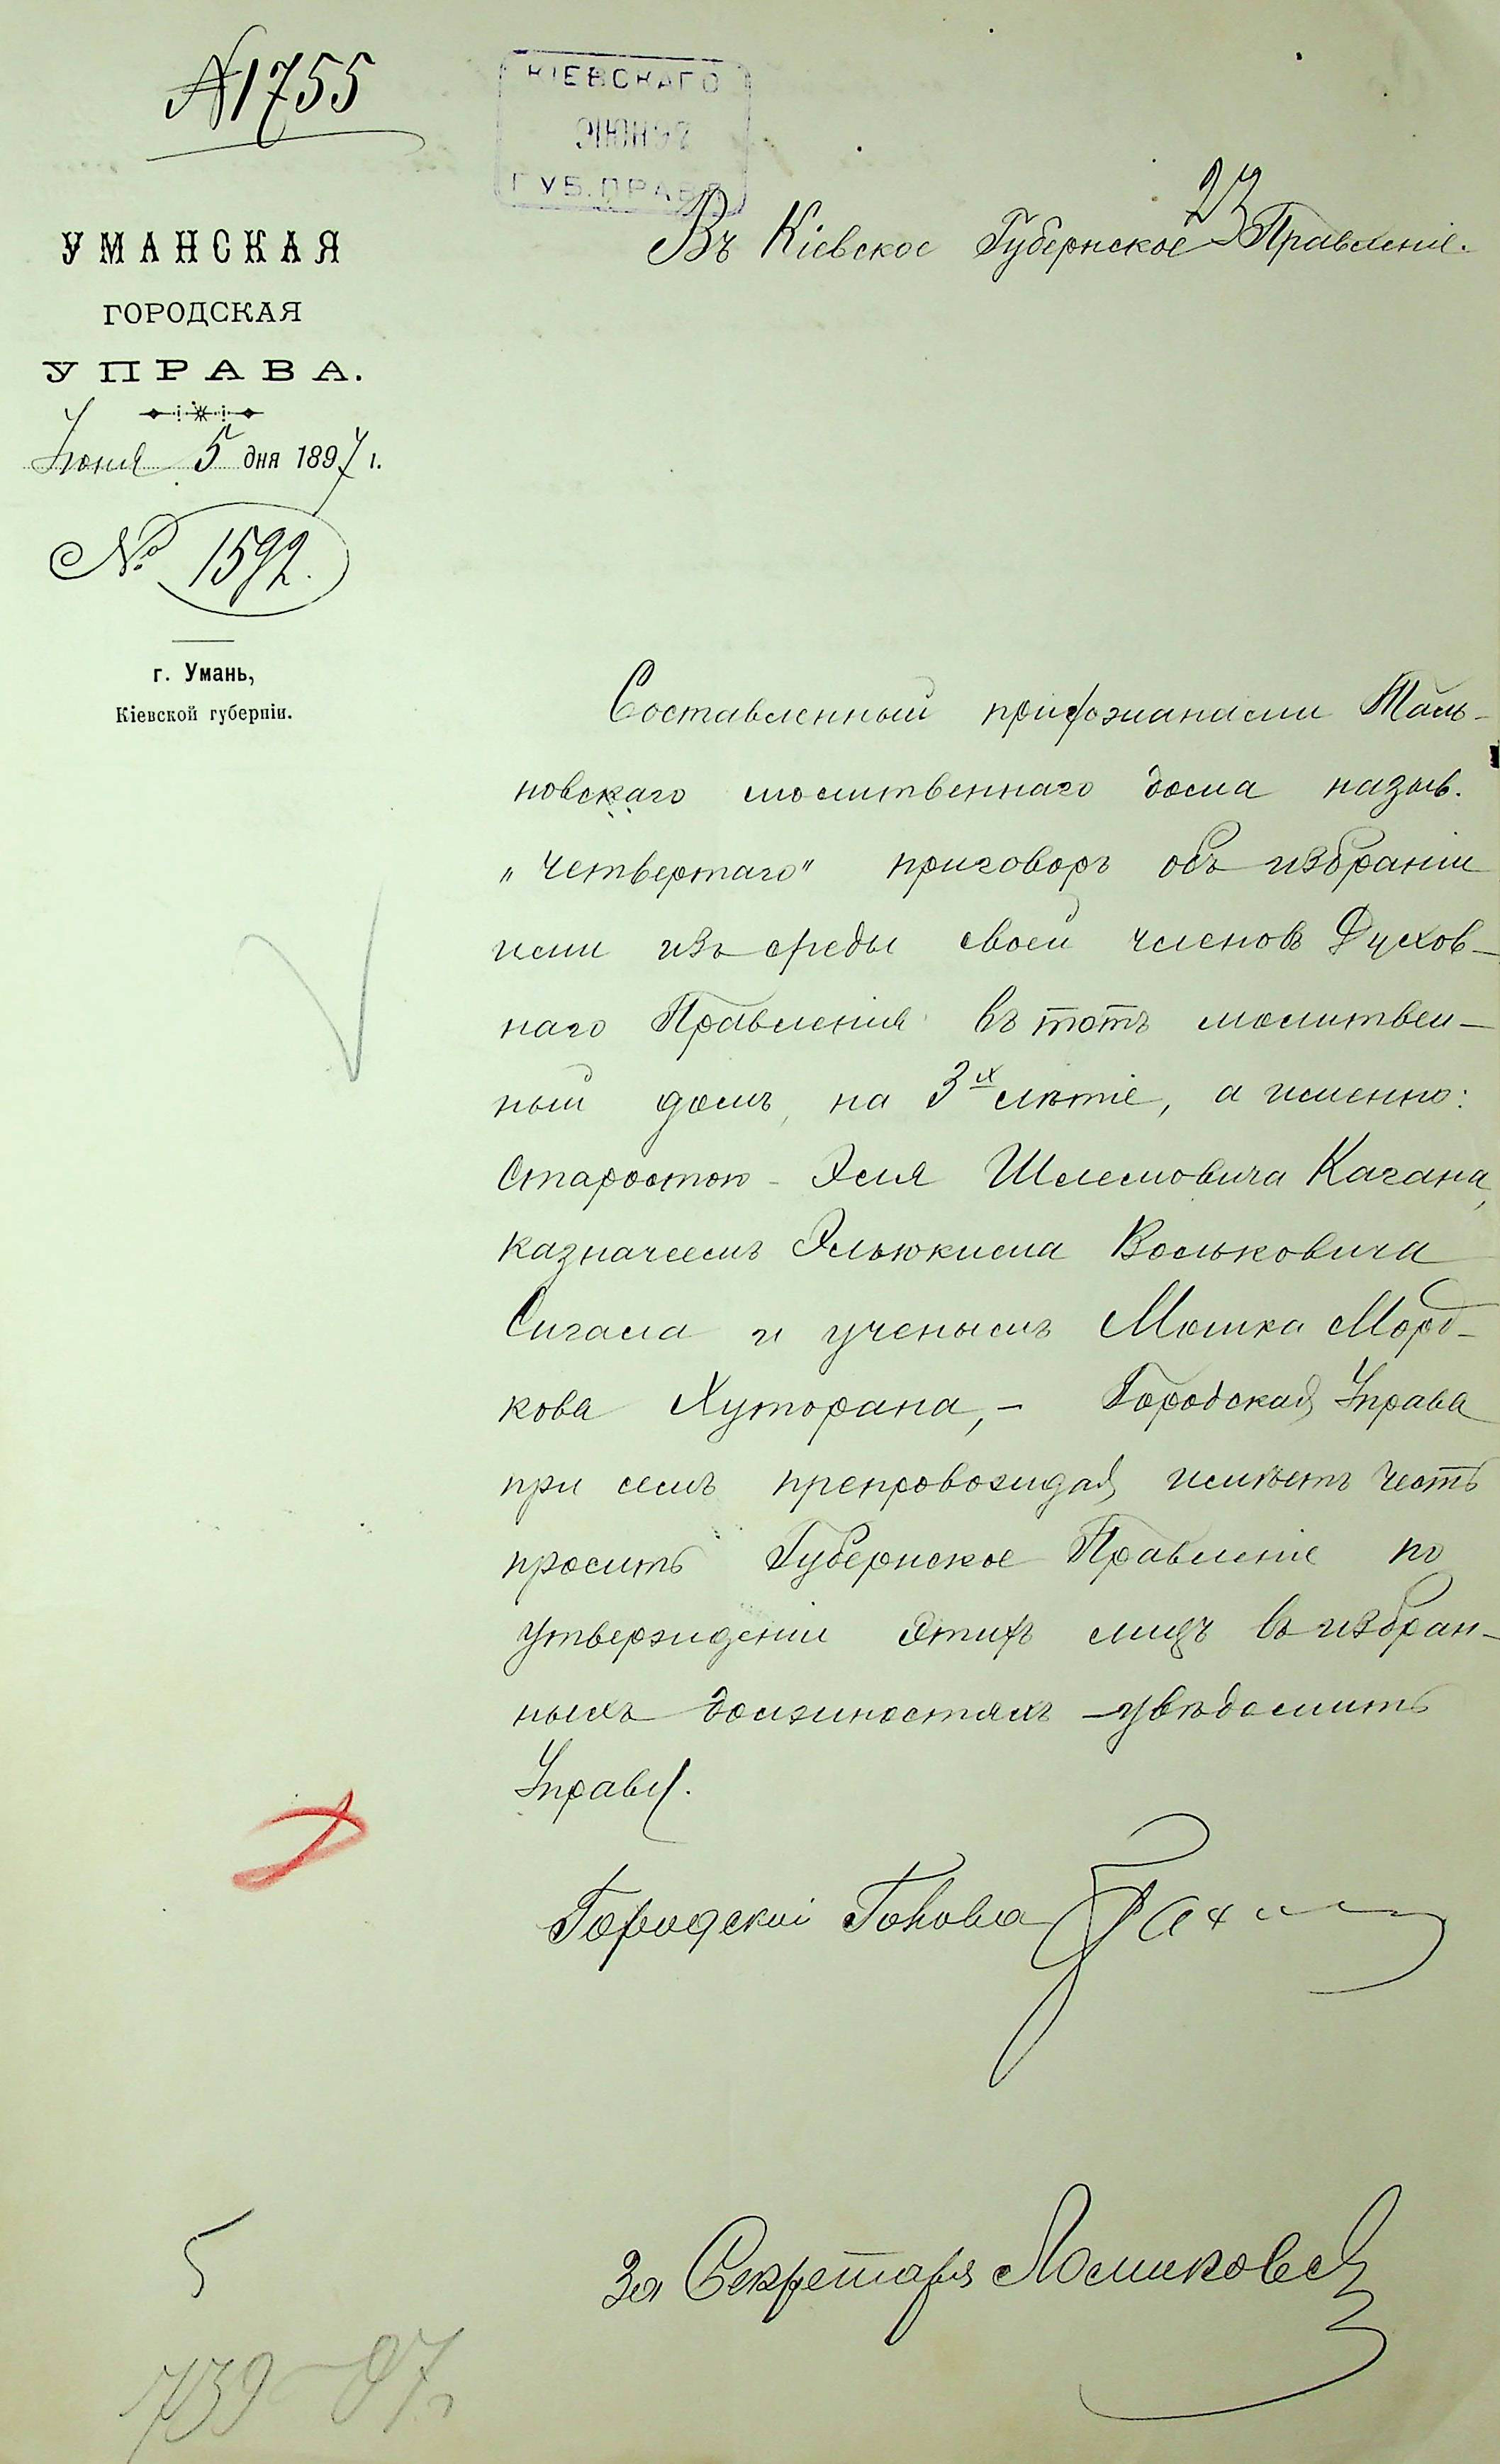 № 1755
КІЕВСКАГО
9 ІЮН 97
ГУБ. ПРАВЛ
23
Въ Кіевское Губернское Правленіе.
УМАНСКАЯ
ГОРОДСКАЯ
УПРАВА.
Іюня 5 дня 1897 г.
№ 1592.
г. Умань,
Кіевской губерніи.
Составленный прихожанами Таль-
новскаго молитвеннаго дома назыв.
„Четвертаго" приговоръ объ избраніи
ими изъ среды своей членовъ Духов-
наго Правленія въ тотъ молитвен-
ный домъ, на 3х лѣтіе, а именно:
Старостою - Эля Шлемовича Кагана,
казначеемъ Эльюкима Вольковича
Сигала и ученымъ Мошка Морд-
кова Хуторана, - Городская Управа
при семъ препровождая, имѣетъ честь
просить Губернское Правленіе по
утвержденіи этихъ лицъ въ избран-
ныхъ должностяхъ - увѣдомить
Управу.
Городской Голова
За Секретаря
5
739-97 г.